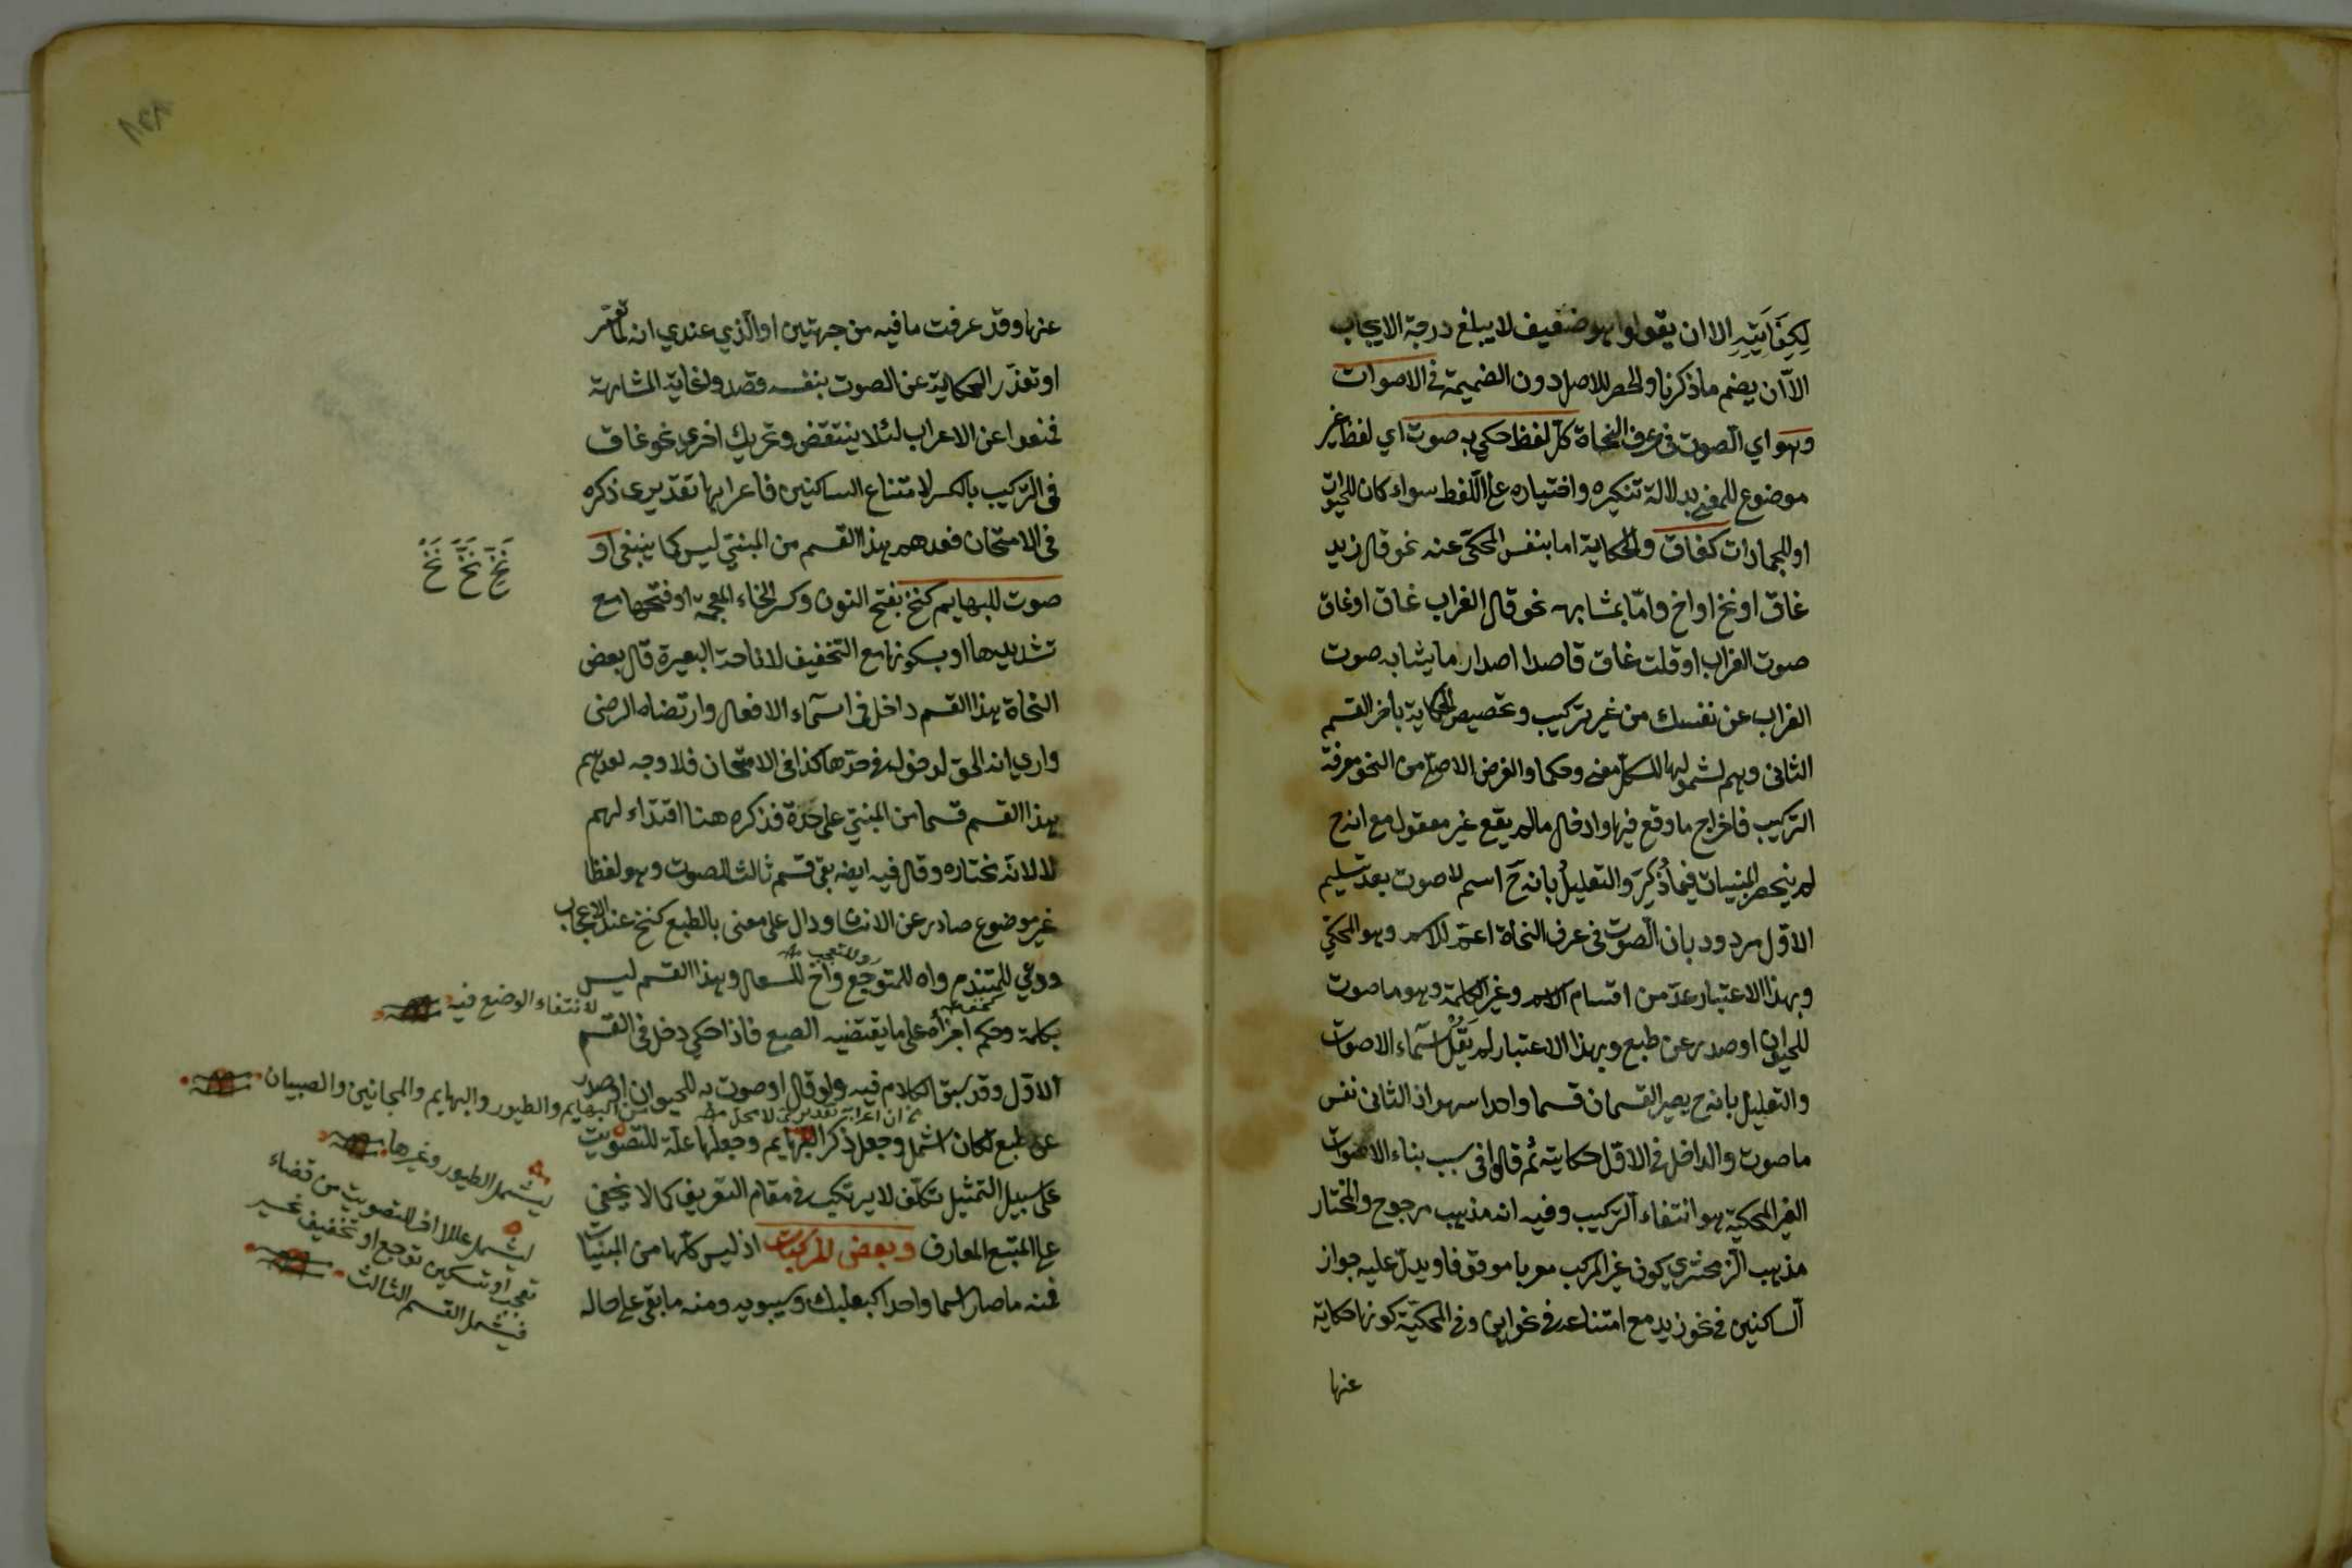 لِكِفَايَتِهِ الا ان يقولوا هو ضعيف لا يبلغ درجة الايجاب
الاّ ان يضم ما ذكرنا والحصر للاصل دون الضميمة في الاصوات
وهو اي الصوت في عرف النحاة كلّ لفظ حكي به صوت اي لفظ غير
موضوع للمعنى بدلالة تنكيره واختياره على اللّفظ سواء كان للحيوان
او للجمادات كغاق والحكاية اما بنفس المحكىّ عنه نحو قال زيد
غاق او نخ او اخ وامّا بمشابهه نحو قال الغراب غاق او غاق
صوت الغراب او قلت غاق قاصدا اصدار ما يشابه صوت
الغراب عن نفسك من غير تركيب وتخصيص الحكاية باخر القسم
الثانى وهم لشمولها للكلّ معنى وحكما والغرض الاصلىّ من النحو معرفة
التركيب فاخراج ما وقع فيها وادخال ما لم يقع غير معقول مع انه ح
لم ينحصر المبنيات فيما ذُكِرَ والتعليل بانه ح اسم لا صوت بعد تسليم
الاوّل مردود بان الصوت فى عرف النحاة اعمّ للاسم وهو المحكىّ
وبهذا الاعتبار عدّ من اقسام الاسم وغير الكلمة وهو ما صوت
للحيوان او صدر عن طبع وبهذا الاعتبار لم يَقُلْ اسماء الاصوات
والتعليل بانه ح يصير القسمان قسما واحدا سهو اذ الثانى نفس
ما صوت والداخل فى الاوّل حكايته ثم قالوا فى سبب بناء الاصوات
الغير المحكيّة هو انتفاء التركيب وفيه انه مذهب مرجوح والمختار
مذهب الزمخشري كون غير المركب معربا موقوفا ويدلّ عليه جواز
الساكنين في نحو زيد مع امتناعه في نحو اين وفى المحكيّة كونها حكاية
عنها
عنها وقد عرفت ما فيه من جهتين او الّذي عندي انه لما تعسّر
او تعذّر الحكاية عن الصوت بنفسه قصدوا غاية المشابهة
فمنعوا عن الاعراب لئلا ينتقض وتحريك اخرى نحو غاق
فى التركيب بالكسر لامتناع الساكنين فاعرابها تقديرى ذكره
فى الامتحان فعدهم هذا القسم من المبنىّ ليس كما ينبغى او
صوت للبهايم كنخ بفتح النون وكسر الخاء المعجمة او فتحها مع
تشديدها او بسكونها مع التخفيف لاناخة البعير قال بعض
النحاة هذا القسم داخل فى اسماء الافعال وارتضاه الرضى
وارى انه الحق لدخوله فى حدّها كذا فى الامتحان فلا وجه لعدّهم
هذا القسم قسما من المبنىّ على حدة فذكره هنا اقتداء لهم
لا لانه نختاره وقال فيه ايضا بقى قسم ثالث للصوت وهو لفظ
غير موضوع صادر عن الانسان دال على معنى بالطبع كنخ عند الاعجاب
ووى للمتندم واه للمتوجع واخ للسعال وهذا القسم ليس
او للتعجب
بكلمة وحكم اجزاه على ما يقتضيه الطبع فاذا حكى دخل فى القسم
الاوّل وقد سبق الكلام فيه ولو قال او صوت به للحيوان او صدر
عن طبع لكان اشمل وجعل ذكر البهايم وجعلها علّة للتصويت
على سبيل التمثيل تكلّف لا يرتكب فى مقام التعريف كما لا يخفى
على المتتبع المعارف وبعض المركبات اذ ليس كلّها من المبنيات
فمنه ما صار اسما واحدا كبعلبك وسيبويه ومنه ما بقى على حاله
نَخِّ نَخَّ نَخْ
لانتفاء الوضع فيه
من البهايم والطيور والبهايم والمجانين والصبيان
ليشمل الطيور وغيرها
تعجب او تسكين توجع او تخفيف
فيشمل القسم الثالث